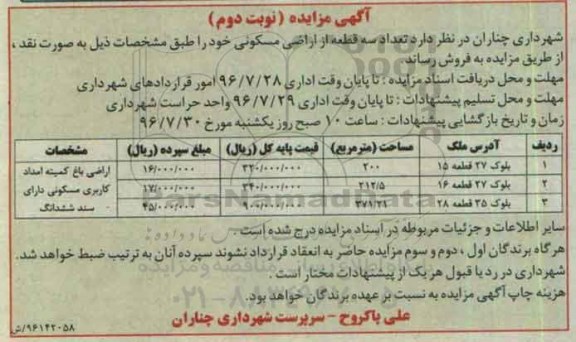 آگهی مزایده (نوبت دوم)
شهرداری چناران در نظر دارد تعداد سه قطعه از اراضی مسکونی خود را طبق مشخصات ذیل به صورت نقد ،
از طریق مزایده به فروش رساند.
مهلت و محل دریافت اسناد مزایده : تا پایان وقت اداری ۹۶/۷/۲۸ امور قراردادهای شهرداری
مهلت و محل تسلیم پیشنهادات : تا پایان وقت اداری ۹۶/۷/۲۹ واحد حراست شهرداری
زمان و تاریخ بازگشایی پیشنهادات : ساعت ۱۰ صبح روز یکشنبه مورخ ۹۶/۷/۳۰
ردیف آدرس ملک مساحت (مترمربع) قیمت پایه کل (ریال) مبلغ سپرده (ریال) مشخصات
۱ بلوک ۲۷ قطعه ۱۵ ۲۰۰ ۳۲۰/۰۰۰/۰۰۰ ۱۶/۰۰۰/۰۰۰ اراضی باغ کمیته امداد
۲ بلوک ۲۷ قطعه ۱۶ ۲۱۲/۵ ۳۴۰/۰۰۰/۰۰۰ ۱۷/۰۰۰/۰۰۰ کاربری مسکونی دارای
۳ بلوک ۳۵ قطعه ۲۸ ۳۷۱/۲۱ ۹۰۰/۰۰۰/۰۰۰ ۴۵/۰۰۰/۰۰۰ سند ششدانگ
سایر اطلاعات و جزئیات مربوطه در اسناد مزایده درج شده است .
هر گاه برندگان اول ، دوم و سوم مزایده حاضر به انعقاد قرارداد نشوند سپرده آنان به ترتیب ضبط خواهد شد.
شهرداری در رد یا قبول هر یک از پیشنهادات مختار است .
هزینه چاپ آگهی مزایده به نسبت بر عهده برندگان خواهد بود.
علی پاکروح - سرپرست شهرداری چناران
۹۶۱۴۲۰۵۸/ش